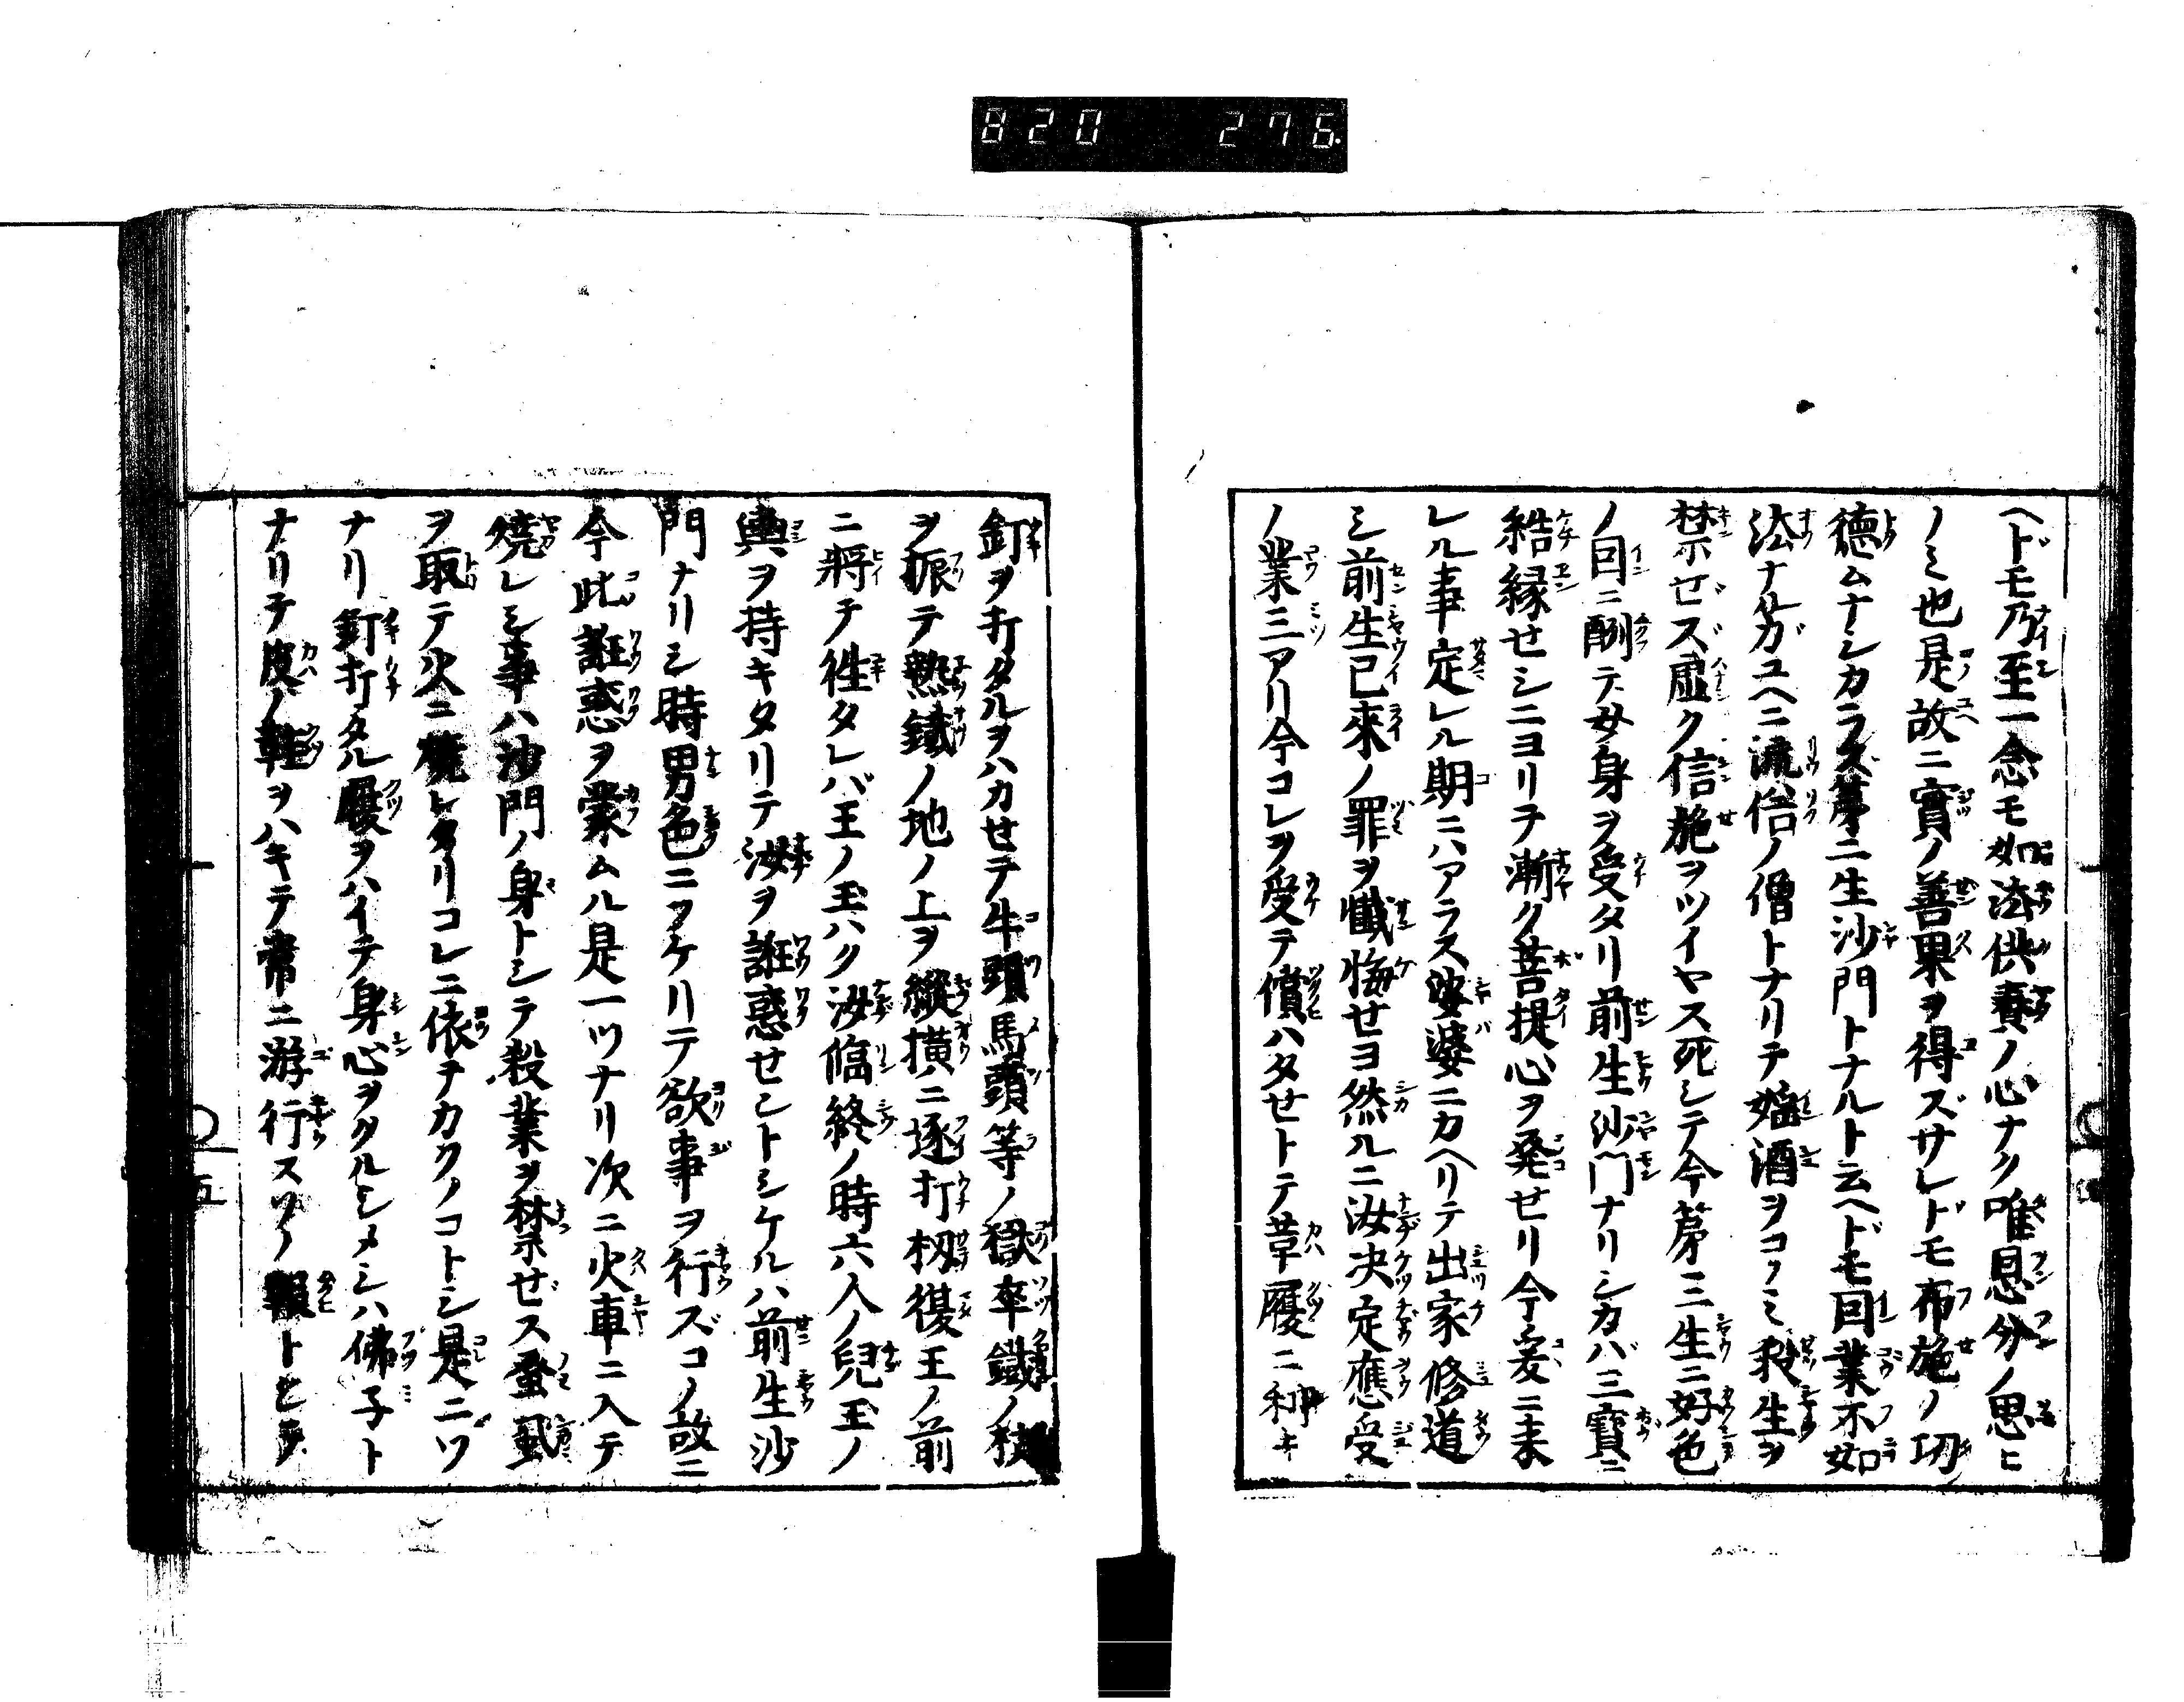 820 276.
ヘドモ乃至一念モ如法供養ノ心ナク唯恩分ノ思ヒ
ノミ也是故ニ實ノ善果ヲ得ズサレドモ布施ノ切
徳ムナシカラズ第二生沙門トナルト云ヘドモ因業不如
法ナルガユヘニ流俗ノ僧トナリテ婬酒ヲコノミ殺生ヲ
禁ゼズ虚ク信施ヲツイヤス死シテ今第三生ニ好色
ノ因ニ酬テ女身ヲ受タリ前生沙門ナリシカバ三寳ニ
結縁せシニヨリテ漸ク菩提心ヲ発せリ今妄ニ来
レル事定レル期ニハアラス娑婆ニカヘリテ出家修道
シ前生已來ノ罪ヲ懺悔せヨ然ルニ汝決定應受
ノ業三アリ今コレヲ受テ償ハタせトテ革履ニ利キ
釘ヲ打タルヲハカせテ牛頭馬頭等ノ獄卒鐵ノ杖
ヲ振テ熱鐵ノ地ノ上ヲ縱横ニ逐打扨復王ノ前
ニ將テ徃タレバ王ノ玉ハク汝臨終ノ時六人ノ兒玉ノ
輿ヲ持キタリテ汝ヲ誑惑せントシケルハ前生沙
門ナリシ時男色ニフケリテ欲事ヲ行ズコノ故ニ
今此誑惑ヲ蒙ムル是一ツナリ次ニ火車ニ入テ
燒レシ事ハ沙門ノ身トシテ殺業ヲ禁ぜス蚤虱
ヲ取テ火ニ燒レタリコレニ依テカクノコトシ是ニツ
ナリ釘打タル履ヲハイテ身心ヲクルシメシハ佛子ト
ナリテ皮ノ鞋ヲハキテ常ニ游行スソノ報トヒテ
五